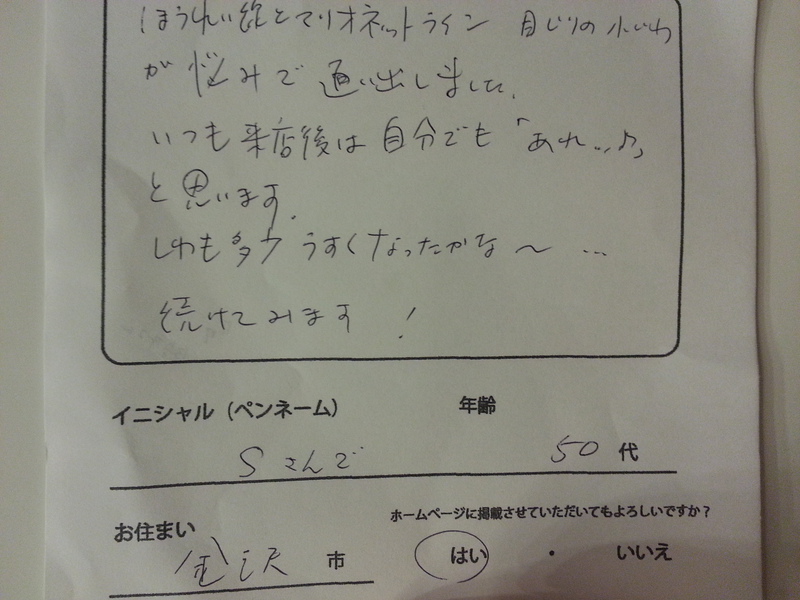 ほうれい線とマリオネットライン 目じりの小じわ
が悩みで通い出しました.
いつも来店後は自分でも「あれ...♪」
と思います.
しわも多少うすくなったかな〜 ...
続けてみます !
イニシャル（ペンネーム） 年齢
Sさんで 50代
お住まい ホームページに掲載させていただいてもよろしいですか？
金沢 市 はい ・ いいえ